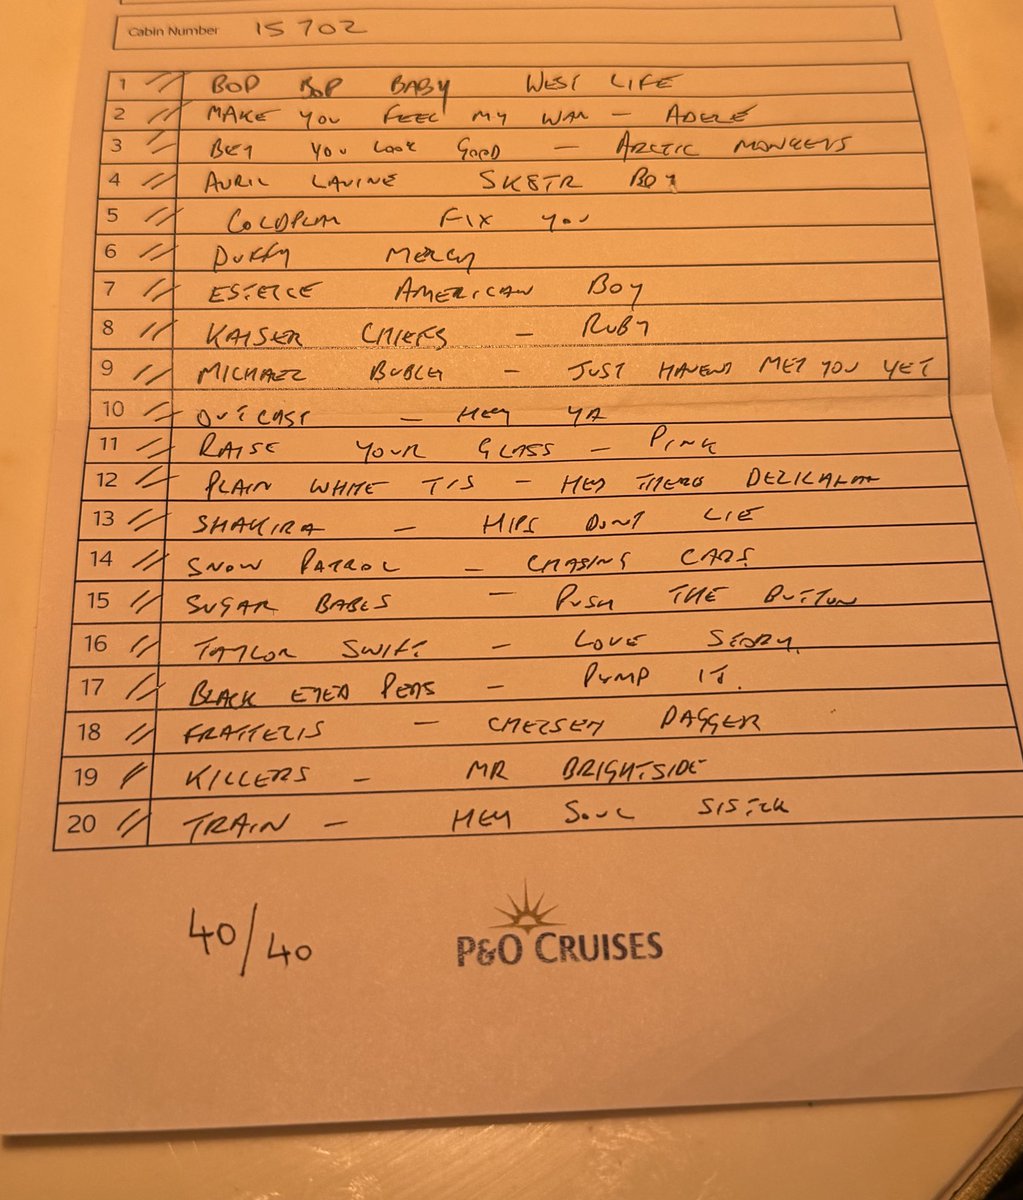 Cabin Number 15702
1 // BOP BOP BABY WEST LIFE
2 // MAKE YOU FEEL MY WAY - ADELE
3 // BET YOU LOOK GOOD - ARCTIC MONKEYS
4 // AVRIL LAVINE SK8TR BOY
5 // COLDPLAY FIX YOU
6 // DUFFY MERCY
7 // ESTELLE AMERICAN BOY
8 // KAISER CHIEFS - RUBY
9 // MICHAEL BUBLY - JUST HAVENT MET YOU YET
10 // OUTCAST - HEY YA
11 // RAISE YOUR GLASS - PINK
12 // PLAIN WHITE T'S - HEY THERE DELILAH
13 // SHAKIRA - HIPS DONT LIE
14 // SNOW PATROL - CHASING CARS
15 // SUGAR BABES - PUSH THE BUTTON
16 // TAYLOR SWIFT - LOVE STORY.
17 // BLACK EYED PEAS - PUMP IT.
18 // FRATTELIS - CHELSEY DAGGER
19 // KILLERS - MR BRIGHTSIDE
20 // TRAIN - HEY SOUL SISTER
40/40
P&O CRUISES